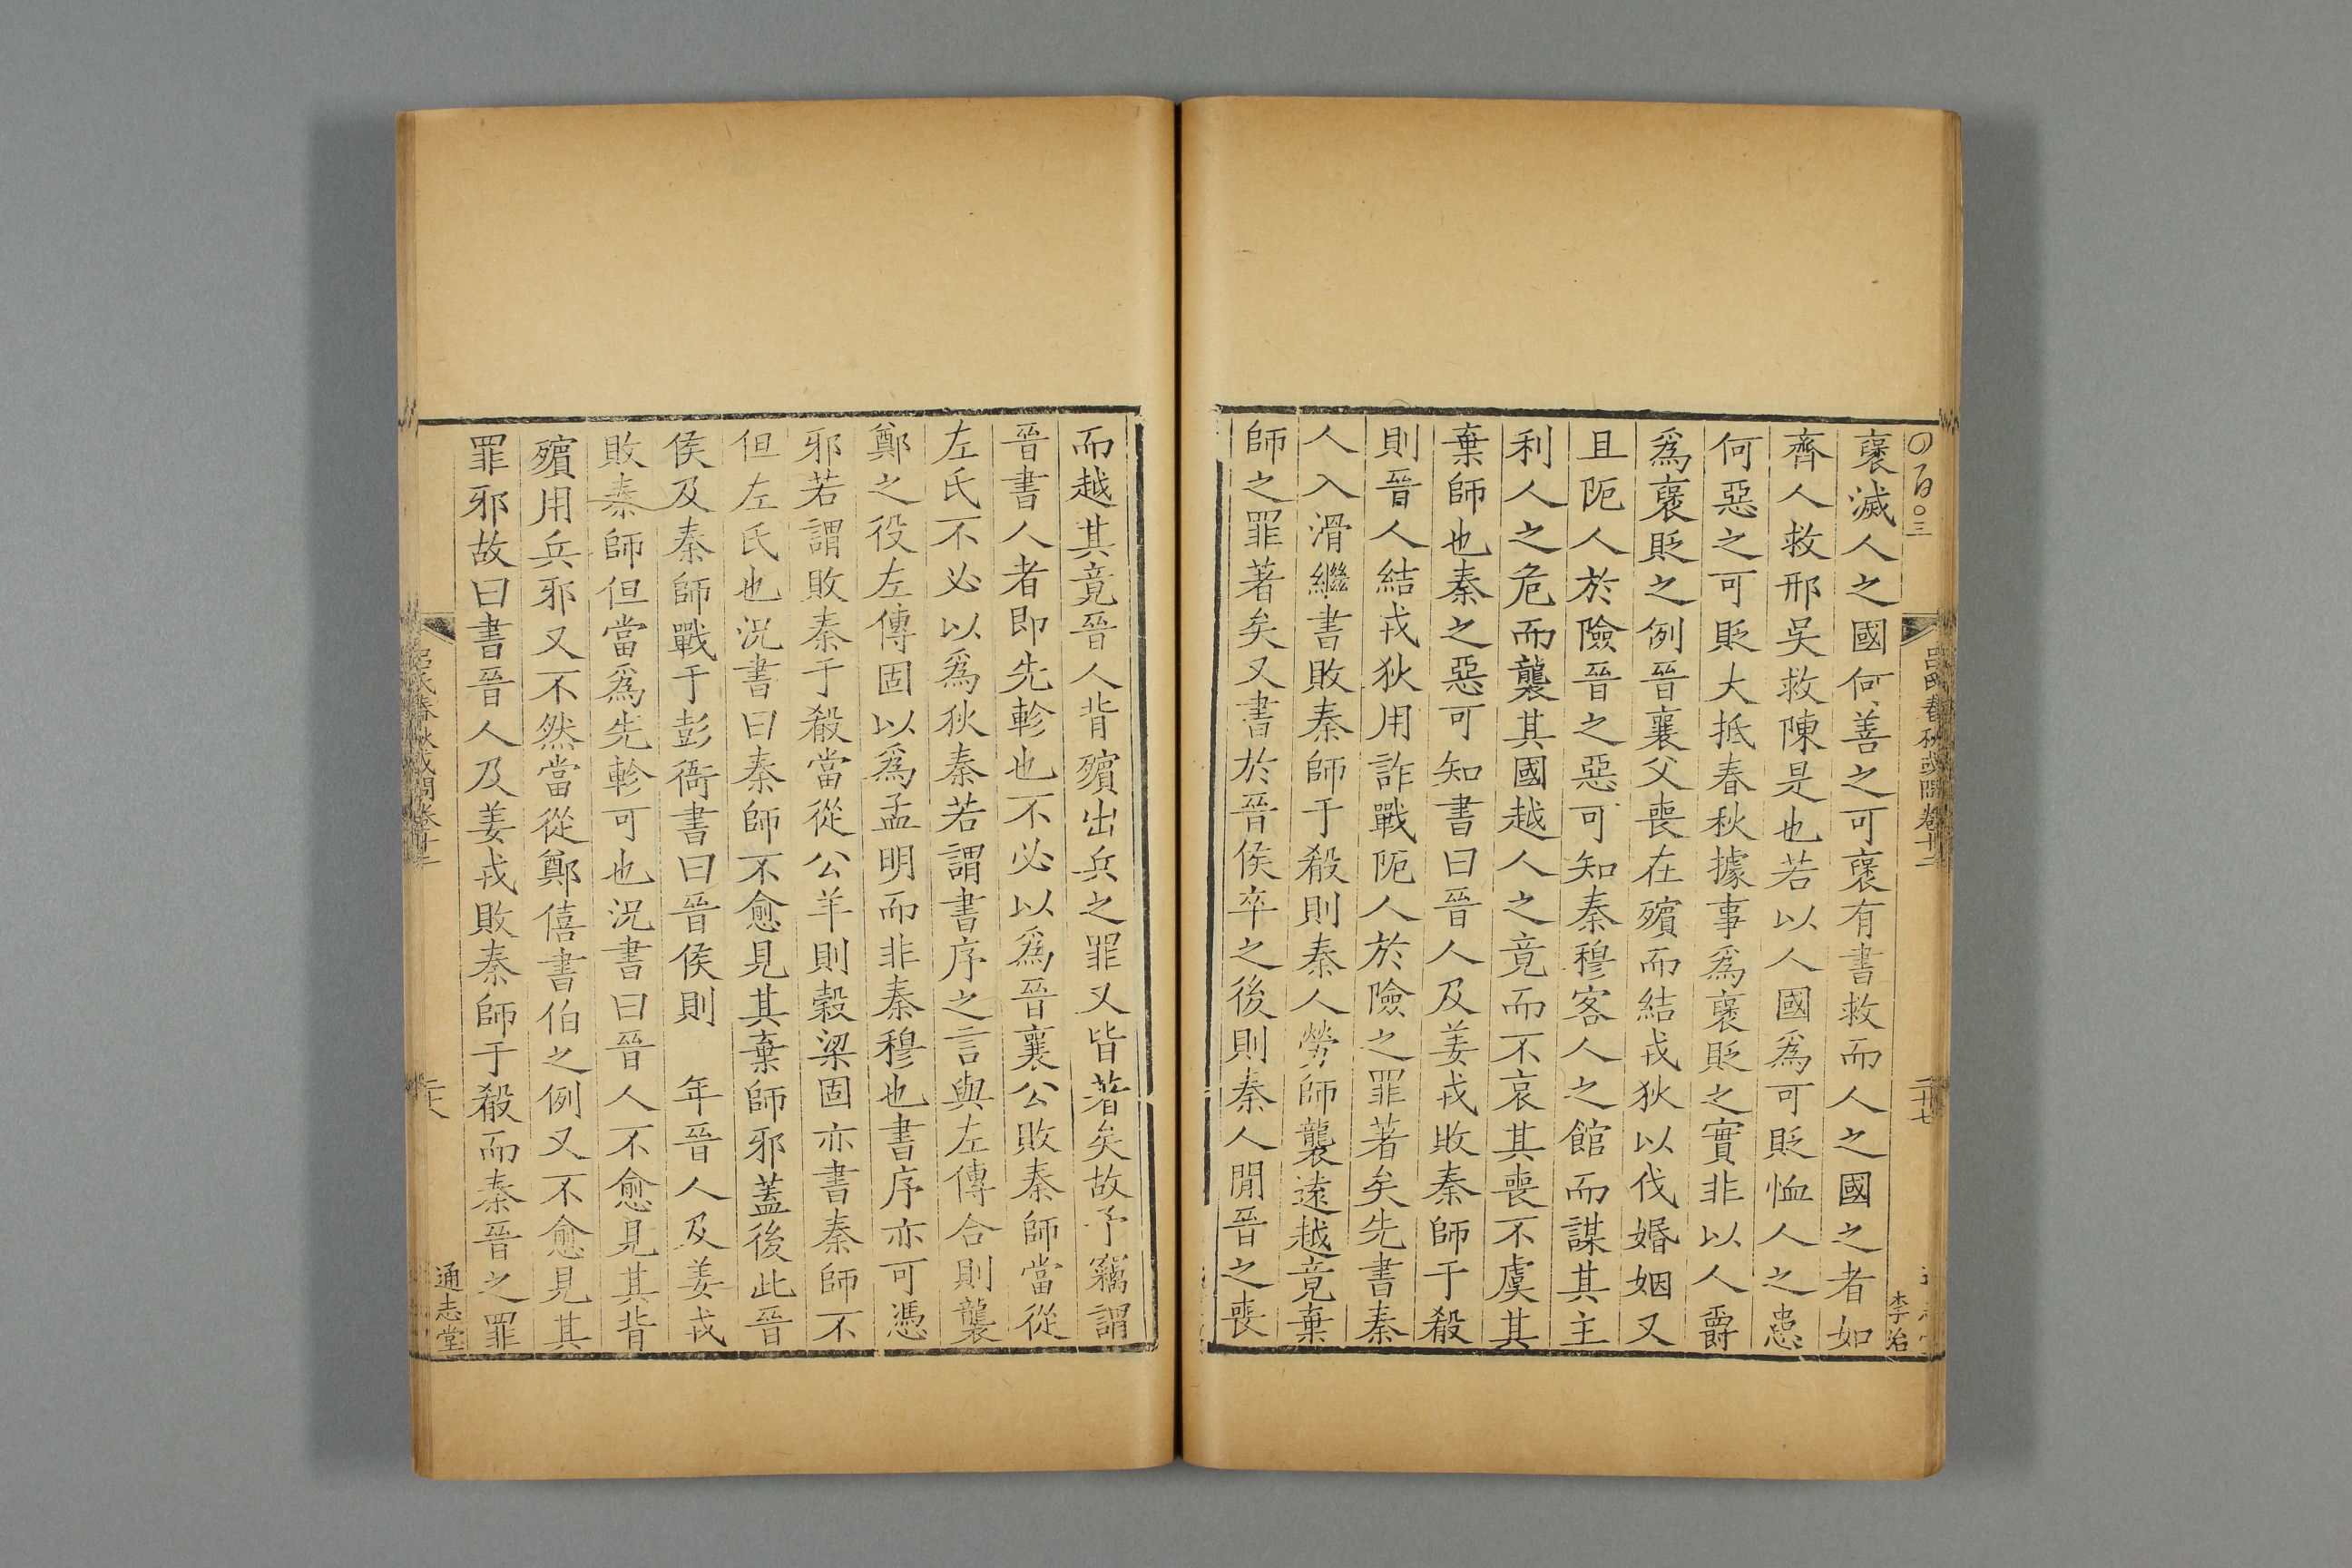 襃滅人之國何善之可襃有書救而人之國之者如
齊人救邢吳救陳是也若以人國爲可貶恤人之患
何惡之可貶大抵春秋據事爲襃貶之實非以人爵
爲襃貶之例晉襄父喪在殯而結戎狄以伐婚姻又
且阨人於險晉之惡可知秦穆客人之館而謀其主
利人之危而襲其國越人之竟而不哀其喪不虞其
棄師也秦之惡可知書曰晉人及姜戎敗秦師于殽
則晉人結戎狄用詐戰阨人於險之罪著矣先書秦
人入滑繼書敗秦師于殽則秦人勞師襲遠越竟棄
師之罪著矣又書於晉侯卒之後則秦人閒晉之喪
李治
而越其竟晉人背殯出兵之罪又皆著矣故予竊謂
晉書人者即先軫也不必以爲晉襄公敗秦師當從
左氏不必以爲狄秦若謂書序之言與左傳合則襲
鄭之役左傳固以爲孟明而非秦穆也書序亦可憑
邪若謂敗秦于殽當從公羊則穀梁固亦書秦師不
但左氏也況書曰秦師不愈見其棄師邪蓋後此晉
侯及秦師戰于彭衙書曰晉侯則 年晉人及姜戎
敗秦師但當爲先軫可也況書曰晉人不愈見其背
殯用兵邪又不然當從鄭僖書伯之例又不愈見其
罪邪故曰書晉人及姜戎敗秦師于殽而秦晉之罪
通志堂